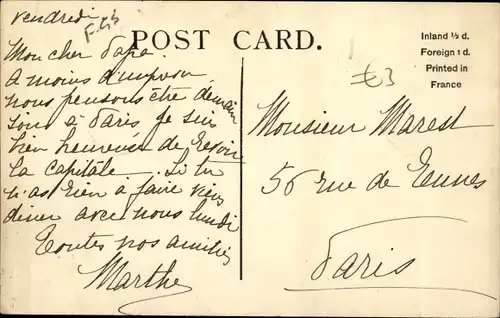 vendredi
POST CARD.
Inland ½ d.
Foreign 1 d.
Printed in
France
£3
Mon cher Papa.
A moins d'imprévu
nous pensons être demain
soir à Paris, je suis
bien heureuse de revoir
la capitale. Si tu
n'as rien à faire viens
diner avec nous lundi
Toutes nos amitiés
Marthe
Monsieur Marest
56 rue de
Paris